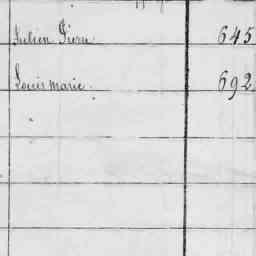 Julien Pierre 645
Louis marie. 692